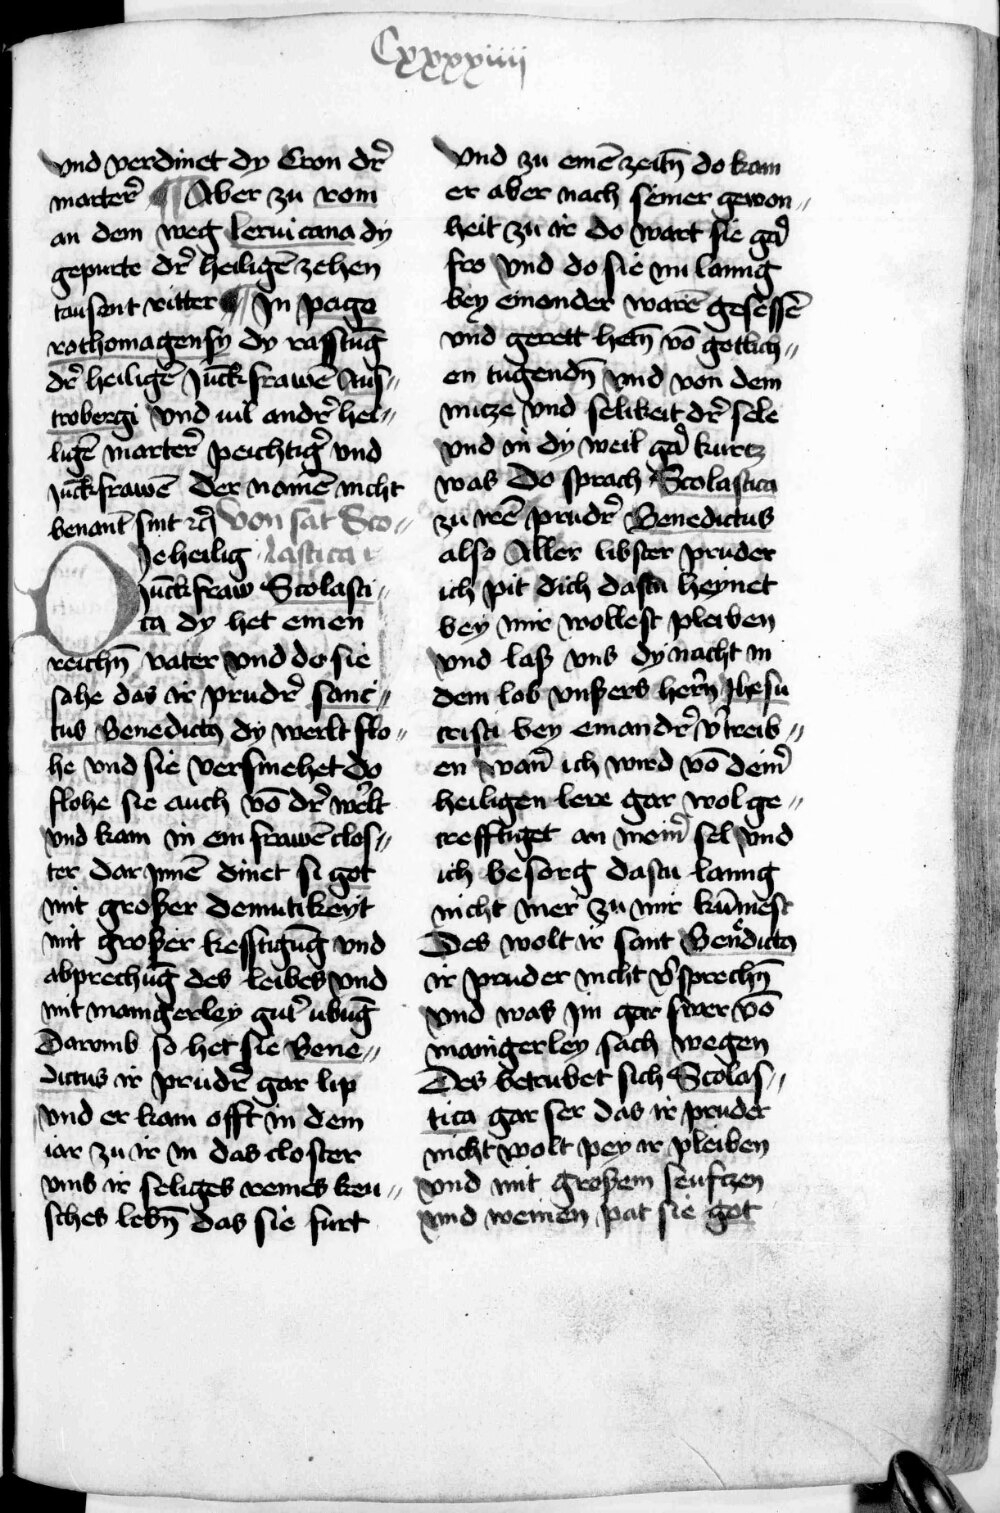 Cxxxxiiii
vnd verdinet dy Cron dr̄
marter̄ ¶ Aber zu rom
an dem weg leruicana dy
gepurte dr̄ heiligē zehen
tausent ritter ¶ In pago
rothomagensy dy rasstūg
dr̄ heiligē Jūckfrawē Aus⸗
trobergi vnd uil andr̄ hei⸗
ligē marter̄ peichtiḡ vnd
Jūckfrawē der namē nicht
benant sint ꝛc̄ Von sāt Sco⸗
lastica
Je heilig
Jūckfraw Scolasti⸗
ca dy het einen
reichn̄ vater vnd do sie
sahe das ir prudr̄ sanc⸗
tus Benedictꝰ dy werlt flo⸗
he vnd sie versmehet do
flohe sie auch vō dr̄ werlt
vnd kam in ein frawē clos⸗
ter dar Innē dinet si got
mit großer demutikeyt
mit großer kesstigūg vnd
abprechūg des leibes vnd
mit mangerley gut̄ ubūg
Darvmb so het sie Bene⸗
dictus ir prudr̄ gar lip
vnd er kam offt in dem
iar zu ir in das closter
vmb ir seliges reines keu⸗
sches lebn̄ das sie furt
vnd zu einē zeitn̄ do kam
er aber nach seiner gewon⸗
heit zu ir do wart sie gar̄
fro vnd do sie nu lanng
bey einander warē gesessē
vnd gerett hetn̄ vō gotlich⸗
en tugendn̄ vnd von dem
nutze vnd selikeit dr̄ sele
vnd in dy weil gar̄ kurtz
was Do sprach Scolastica
zu irē prudr̄ Benedictus
also Aller libster pruder
ich pit dich dastu heynet
bey mir wollest pleiben
vnd laß vns dy nacht in
dem lob vnßers hern̄ Jhesu
cristi bey einandr̄ v̄treib⸗
en wan̄ ich wird vō deim̄
heiligen lere gar wol ge⸗
creffttiget an meim̄ sel vnd
ich besorg dastu lanng
nicht mer zu mir kūmest
Des wolt ir sant Ben̄dictꝰ
ir pruder nicht v̄sprechn̄
vnd was im gar swer vō
maingerley sach wegen
Des betrubet sich Scolas⸗
tica gar ser das ir pruder
nicht wolt pey ir pleiben
vnd mit großem seuftzen
vnd weinen pat sie got